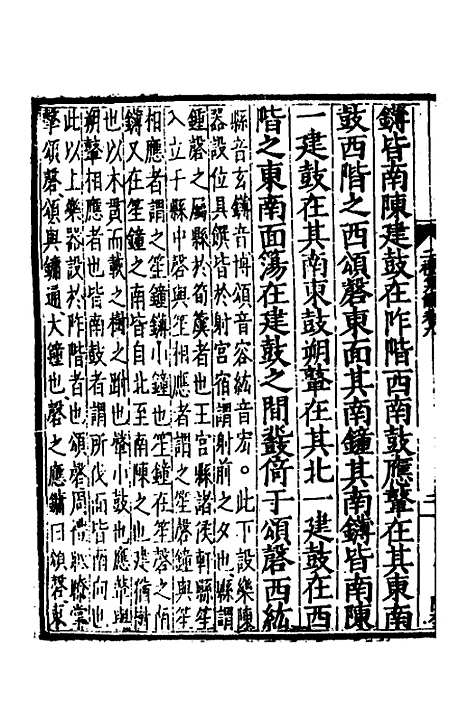 鎛皆南陳建鼓在阼階西南鼓應鼙在其東南
鼓西階之西頌磬東面其南鐘其南鎛皆南陳
一建鼓在其南東鼓朔鼙在其北一建鼓在西
階之東南面簜在建鼓之間鼗倚于頌磬西紘
縣音玄鎛音博頌音容紘音宏。此下設樂陳
器設位具饌皆於射宮宿謂射前之夕也縣謂
鍾磬之屬縣於筍簴者也王宮縣諸侯軒縣笙
入立于縣中磬與笙相應者謂之笙磬鐘與笙
相應者謂之笙鐘鎛小鐘也笙鐘在笙磬之南
鎛又在笙鐘之南皆自北至南陳之也建猶樹
也以木貫而載之樹之跗也鼙小鼓也應鼙與
朔鼙相應者也皆南鼓者謂所伐面皆南向也
此以上樂器設於阼階者也頌磬周禮眡瞭掌
擊頌磬頌與鏞通大鐘也磬之應鏞曰頌磬東